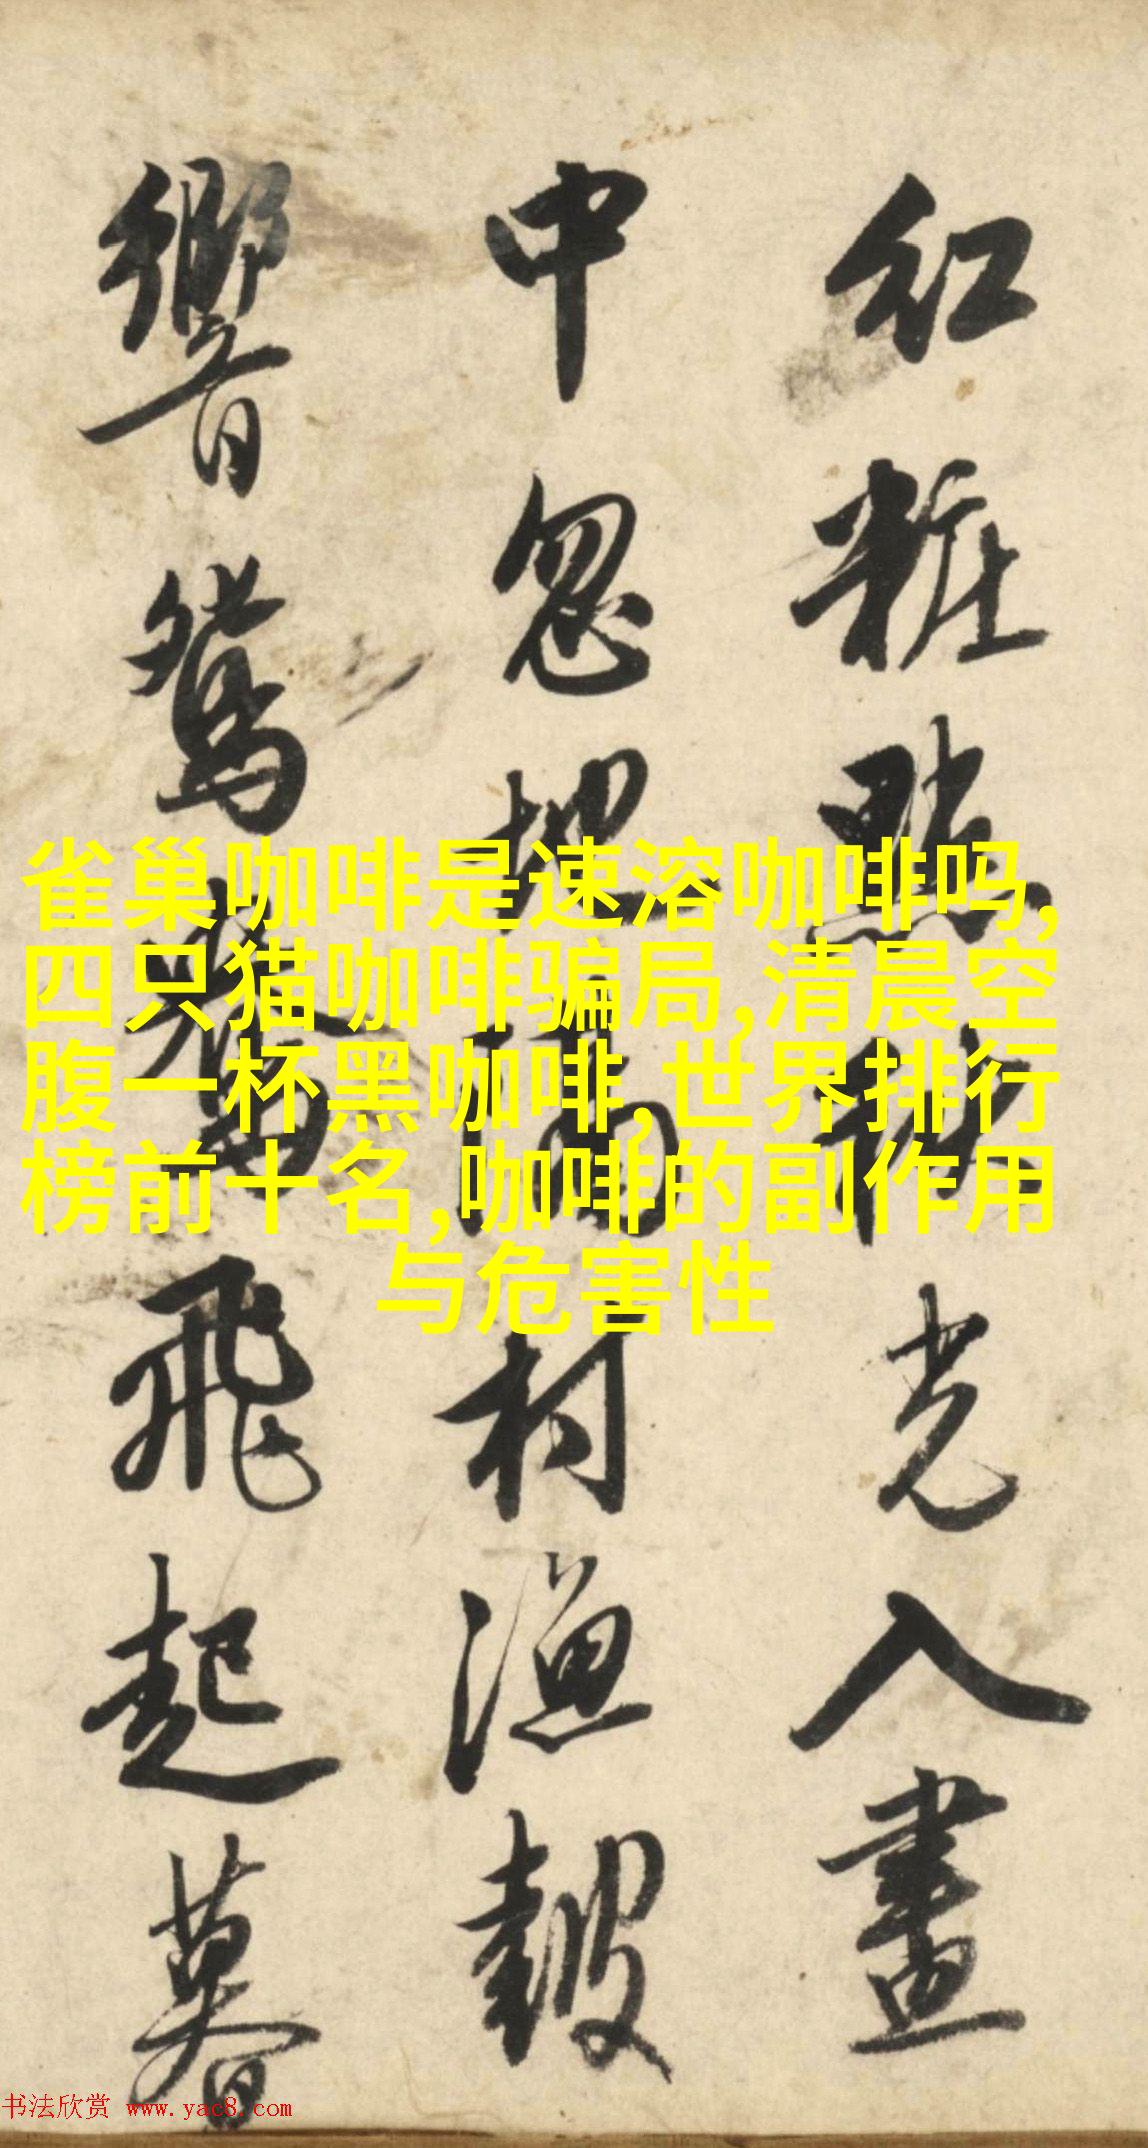 紅粧點秋光入畫
中忽提滿村漁鼓
響鴛鴦飛起暮
雀巢咖啡是速溶咖啡吗,
四只猫咖啡骗局,清晨空
腹一杯黑咖啡,世界排行
榜前十名,咖啡的副作用
与危害性
书法欣赏 www.yac8.com